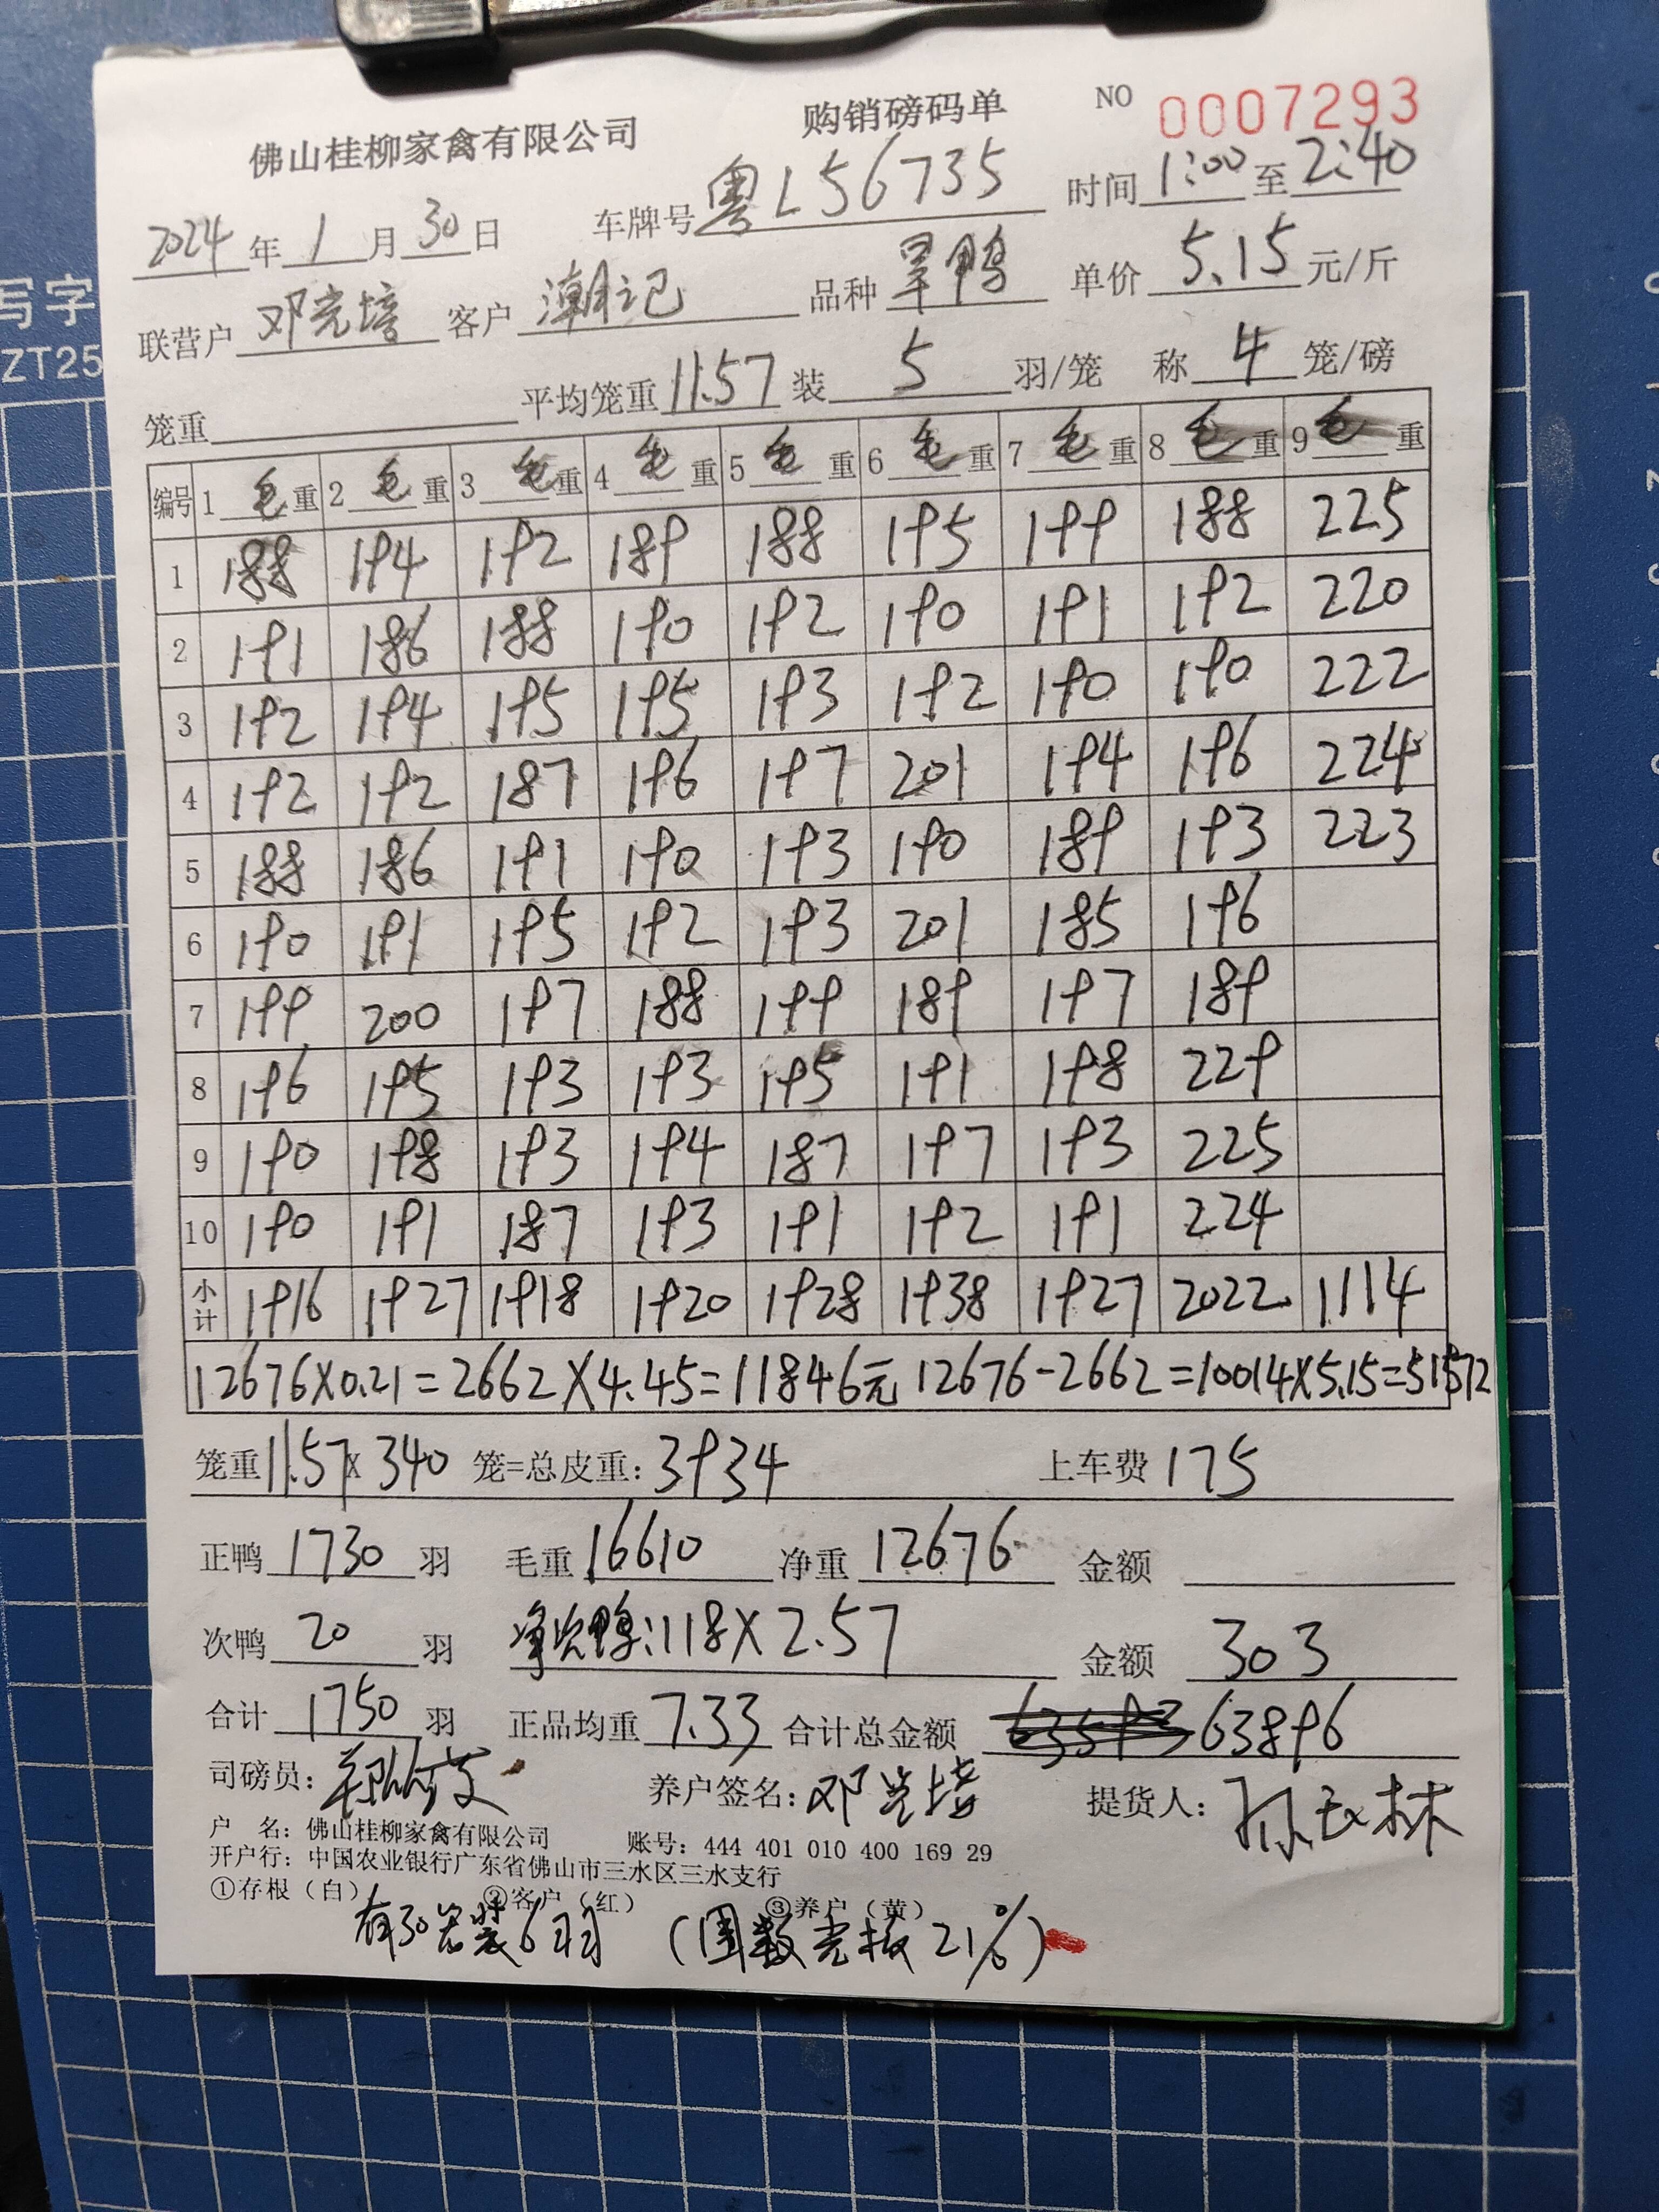 佛山桂柳家禽有限公司 购销磅码单 NO 0007293
2024年1月30日 车牌号粤L56735 时间1:00至2:40
联营户邓光培 客户潮记 品种旱鸭 单价5.15元/斤
笼重 平均笼重11.57装5羽/笼 称4笼/磅
编号 1毛重 2毛重 3毛重 4毛重 5毛重 6毛重 7毛重 8毛重 9毛重
1 188 194 192 189 188 195 199 188 225
2 191 186 188 190 192 190 191 192 220
3 192 194 195 195 193 192 190 190 222
4 192 192 187 196 197 201 194 196 224
5 188 186 191 190 193 190 189 193 223
6 190 191 195 192 193 201 185 196
7 199 200 197 188 199 189 197 189
8 196 195 193 193 195 191 198 229
9 190 198 193 194 187 197 193 225
10 190 191 187 193 191 192 191 224
小计 1916 1927 1918 1920 1928 1938 1927 2022 1114
12676×0.21=2662×4.45=11846元 12676-2662=10014×5.15=51572
笼重11.57×340 笼=总皮重:3934 上车费175
正鸭1730羽 毛重16610 净重12676 金额
次鸭20羽 净次鸭:118×2.57 金额303
合计1750羽 正品均重7.33 合计总金额 63896
司磅员: 养户签名:邓光培 提货人:
户 名:佛山桂柳家禽有限公司 账号:444 401 010 400 169 29
开户行:中国农业银行广东省佛山市三水区三水支行
①存根(白) ②客户(红) ③养户(黄)
有30笼装6羽 (围数光板21%)